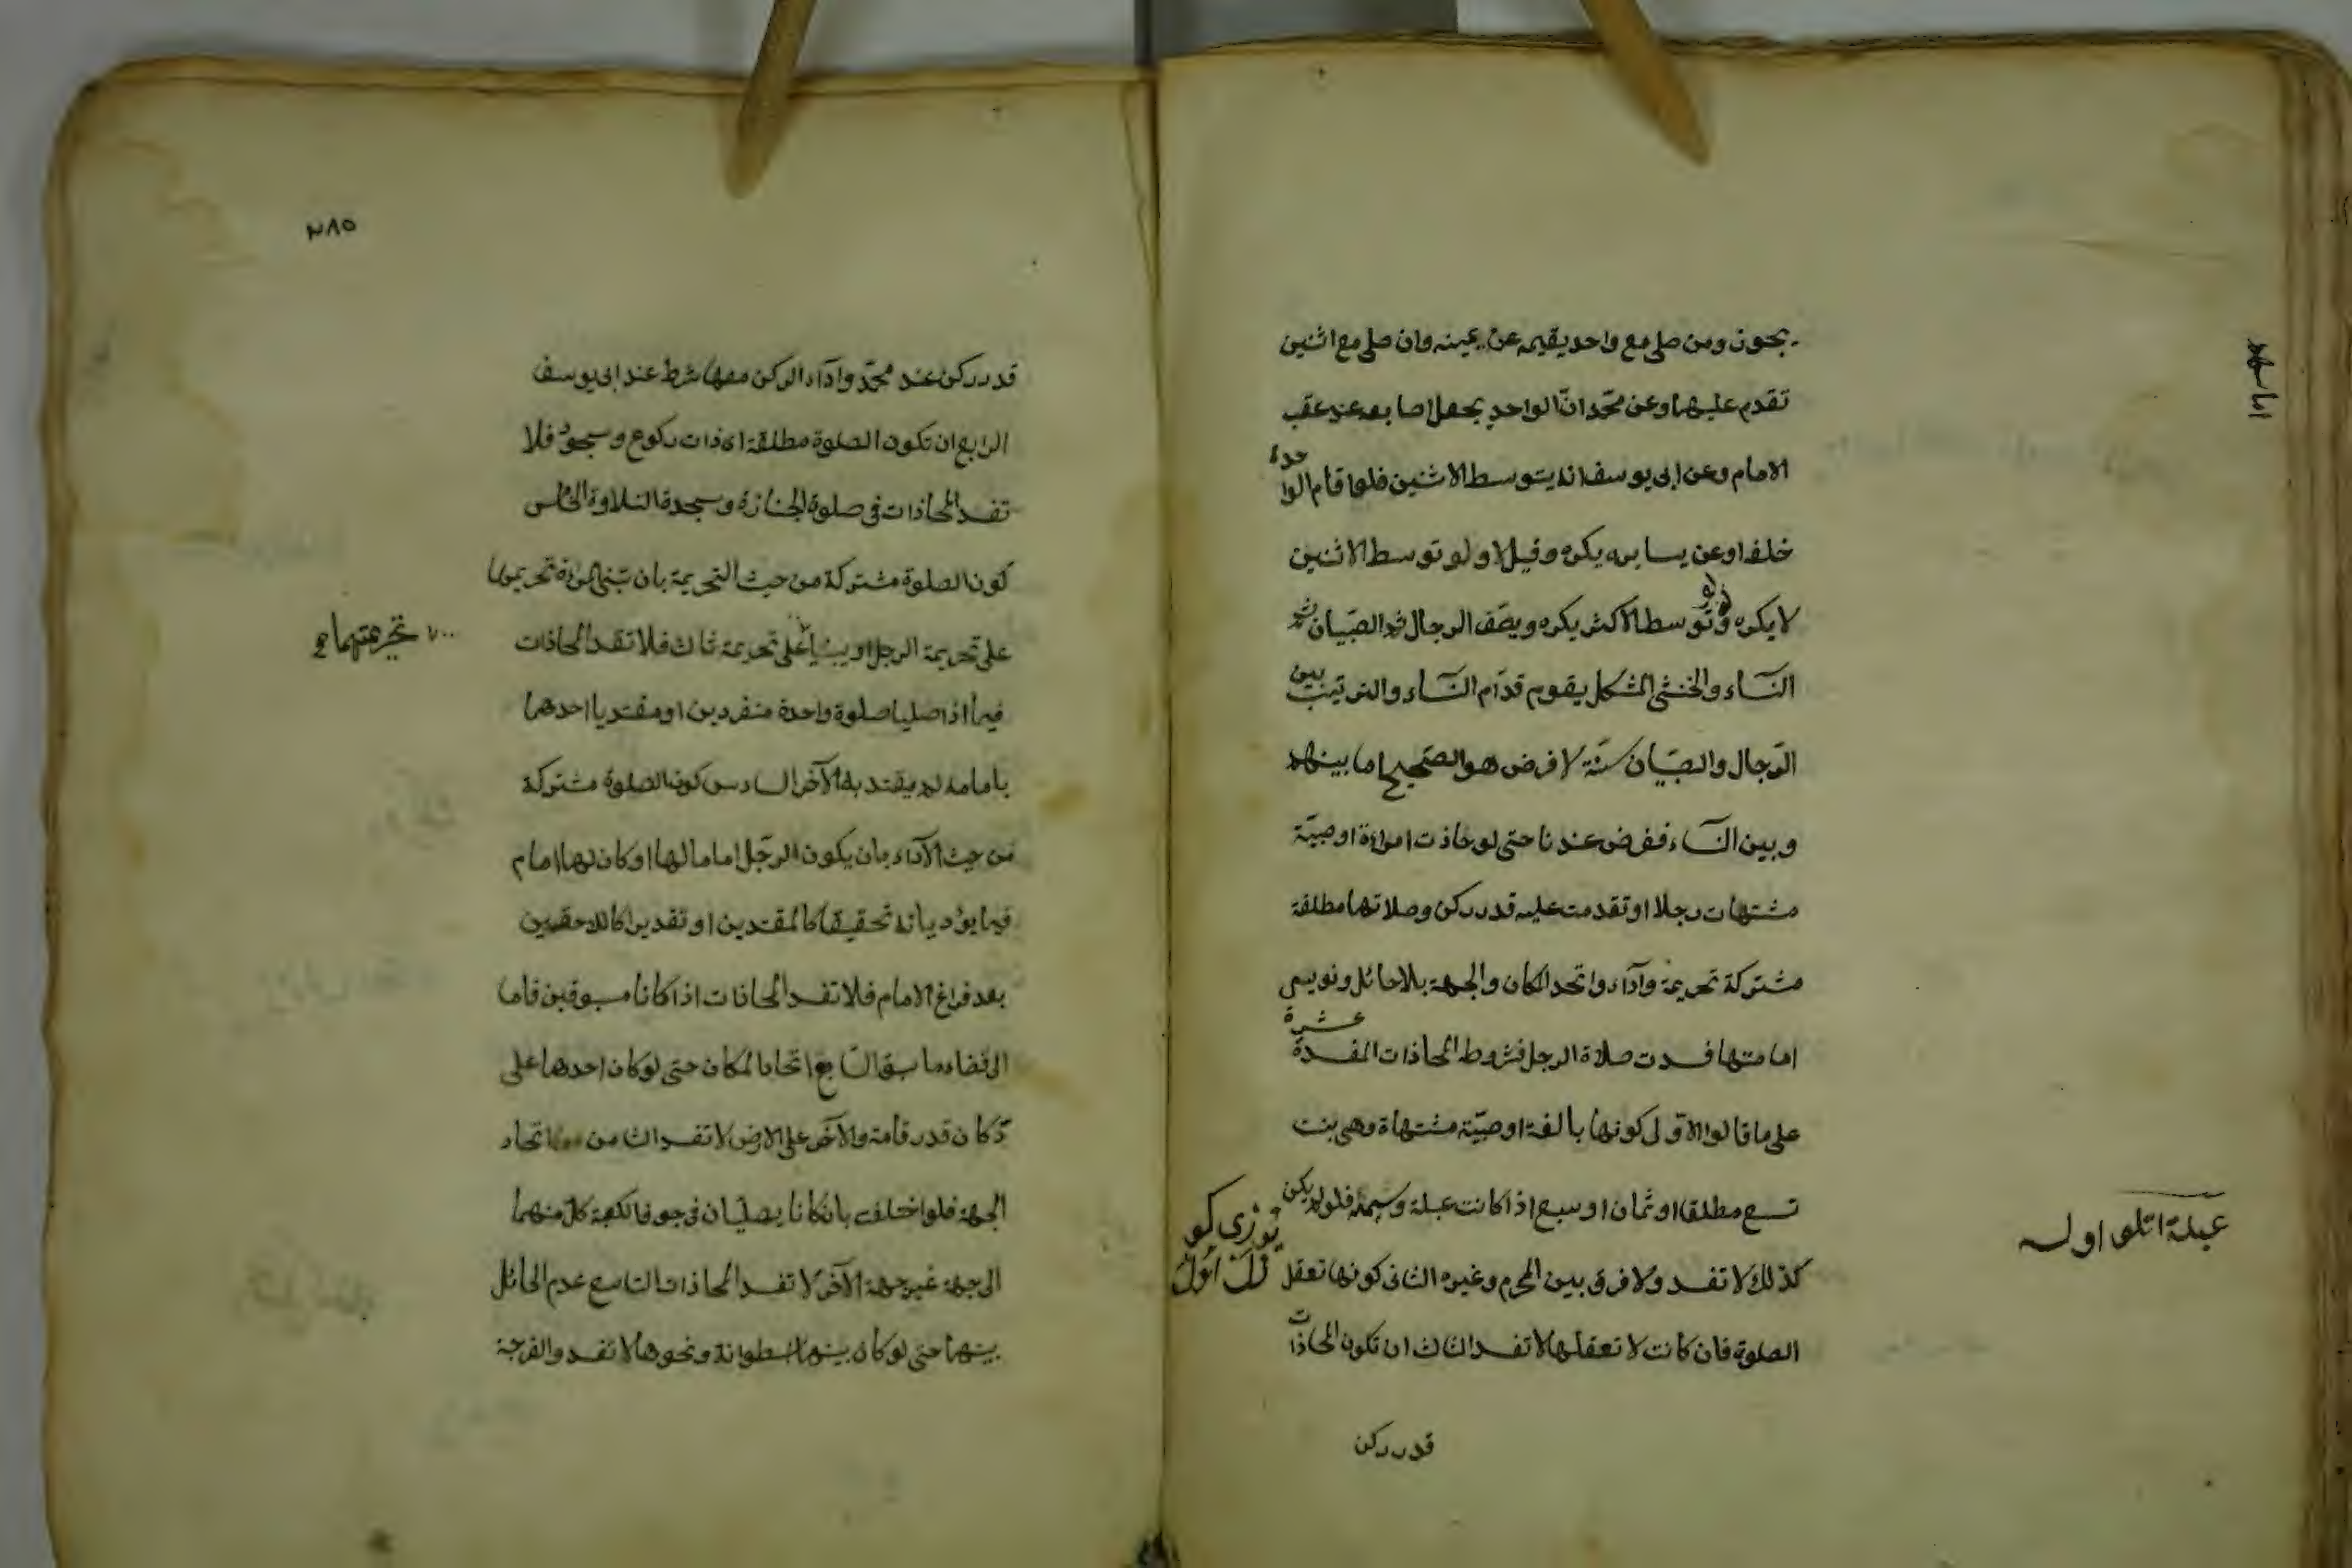 يجوز ومن صلى مع واحد يقيمه عن يمينه وان صلى مع اثنين
تقدم عليهما وعن محمّد انّ الواحد يجعل اصابعه عند عقب
الامام وعن ابى يوسف انه يتوسط الاثنين فلو قام الواحد
خلفه او عن يساره يكره وقيل لا ولو توسط الاثنين
لا يكره ولو توسط الاكثر يكره ويصّف الرجال ثم الصّبيان ثم
النّساء والخنثى المشكل يقوم قدّام النّساء والترتيب بين
الرّجال والصّبيان سنّة لا فرض هو الصّحيح اما بينهم
وبين النّساء ففرض عندنا حتى لو حاذت امراءة او صبيّة
مشتهات رجلا او تقدمت عليه قدر ركن وصلاتها مطلقة
مشتركة تحريمة وآداء واتحد المكان والجهة بلا حائل ونوىى
امامتها فسدت صلاة الرجل فشروط المحاذات المفسدة عشرة
على ما قالوا الاوّلى كونها بالغة او صبيّة مشتهاة وهى بنت
تسع مطلقا او ثمان او سبع اذا كانت عبلة وسيمة فلو لم يكن
كذلك لا تفسد ولا فرق بين المحرم وغيره الثانى كونها تعقل
الصلوة فان كانت لا تعقلها لا تفسد الثالث ان تكون المحاذات
قدر ركن
عبلة اتلو اوله
يوزى كو
زل اول
٢٨٥
قدر ركن عند محمّد وادآء الركن معها شرط عند ابى يوسف
الرابع ان تكون الصلوة مطلقة اى ذات ركوع وسجود فلا
تفسد المحاذات فى صلوة الجنازة وسجدة التلاوة الخامس
كون الصلوة مشتركة من حيث التحريمة بان تبنى المرءة تحريمتها
على تحريمة الرجل او يبنيا على تحريمة ثالث فلا تفسد المحاذات
تحريمتهما
فيما اذا صليا صلوة واحدة منفردين او مقتديا احدهما
بامام لم يقتد به الآخر السادس كون الصلوة مشتركة
من حيث الآداء بان يكون الرّجل اماما لها او كان لهما امام
فيما يؤديانه تحقيقا كالمقتدين او تقديرا كاللاحقين
بعد فراغ الامام فلا تفسد المحاذات اذا كانا مسبوقين قاما
الى قضاء ما سبقا السّابع اتحاد المكان حتى لو كان احدهما على
دّكان قدر قامة والآخر على الارض لا تفسد الثامن اتحاد
الجهة فلو اختلفت بان كانا يصليّان فى جوف الكعبة كلّ منهما
الى جهة غير جهة الآخر لا تفسد المحاذات التاسع عدم الحائل
بينهما حتى لو كان بينهما اسطوانة ونحوها لا تفسد والفرجة